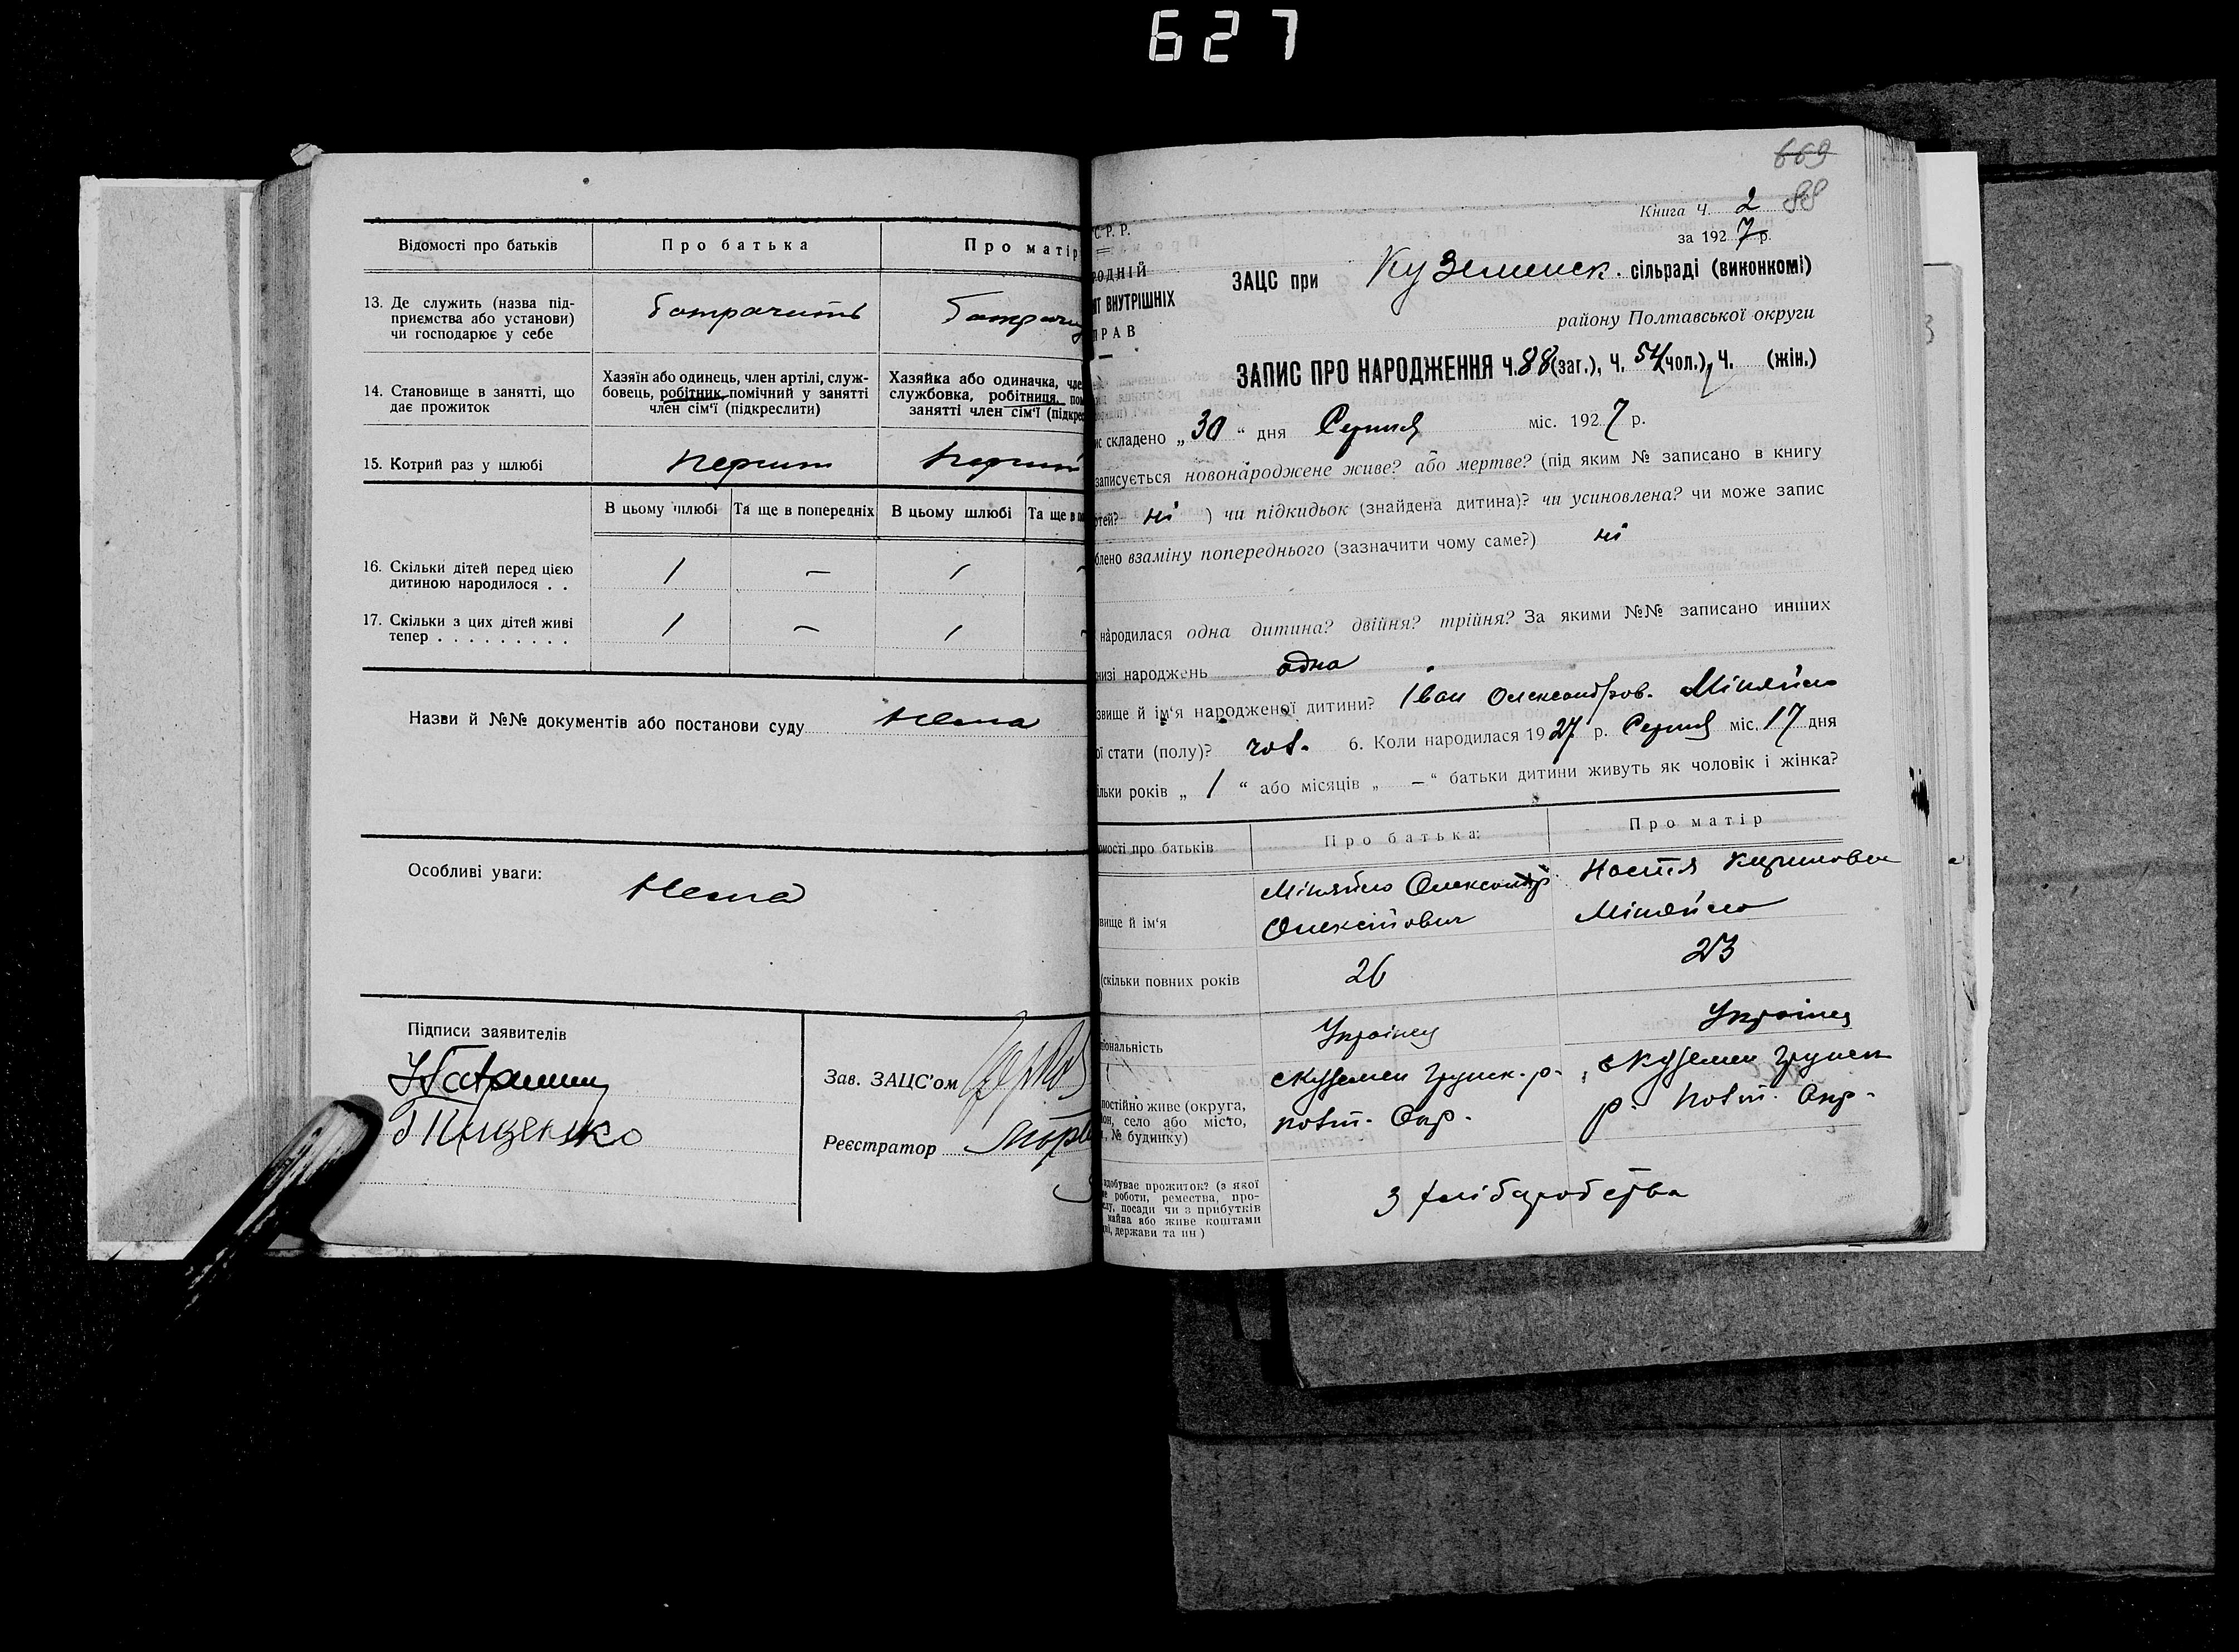 627
Відомості про батьків
Про батька
Про матір
13. Де служить (назва під-
приємства або установи)
чи господарює у себе
батрачить
батрачить
14. Становище в занятті, що
дає прожиток
Хазяїн або одинець, член артілі, служ-
бовець, робітник, помічний у занятті
член сім'ї (підкреслити)
Хазяйка або одиначка, чле
службовка, робітниця, пом
занятті член сім'ї (підкрес
15. Котрий раз у шлюбі
перший
перший
В цьому шлюбі
Та ще в попередніх
В цьому шлюбі
Та ще в по
16. Скільки дітей перед цією
дитиною народилося . .
1 — 1 —
17. Скільки з цих дітей живі
тепер . . . . . . . . .
1 — 1 —
Назви й №№ документів або постанови суду нема
Особливі уваги:
нема
Підписи заявителів
Тищенко
Зав. ЗАЦС'ом
Реєстратор
669
88
Книга Ч. 2
за 1927 р.
С. Р. Р.
РОДНІЙ
АТ ВНУТРІШНІХ
ПРАВ
ЗАЦС при Куземенск. сільраді (виконкомі)
району Полтавської округи
ЗАПИС ПРО НАРОДЖЕННЯ ч. 88 (заг.), ч. 54 (чол.), ч. (жін.)
ис складено „30“ дня Серпня міс. 1927 р.
записується новонароджене живе? або мертве? (під яким № записано в книгу
ртей? ні ) чи підкидьок (знайдена дитина)? чи усиновлена? чи може запис
блено взаміну попереднього (зазначити чому саме?) ні
народилася одна дитина? двійня? трійня? За якими №№ записано инших
низі народжень одна
звище й ім'я народженої дитини? Іван Олександров. Міняйло
ої стати (полу)? чол. 6. Коли народилася 1927 р. Серпня міс. 17 дня
ільки років „1“ або місяців „—“ батьки дитини живуть як чоловік і жінка?
омості про батьків
Про батька:
Про матір
вище й ім'я
Міняйло Олександр
Олексійович
Настя Кириловна
Міняйло
(скільки повних років
26
23
іональність
Українец
Українец
постійно живе (округа,
он, село або місто,
, № будинку)
с Куземен Грунск. р.
Полт. Окр.
с Куземен Грунск
р. Полт. Окр.
здобуває прожиток? (з якої
е роботи, ремества, про-
слу, посади чи з прибутків
майна або живе коштами
ні, держави та ин)
З хліборобства